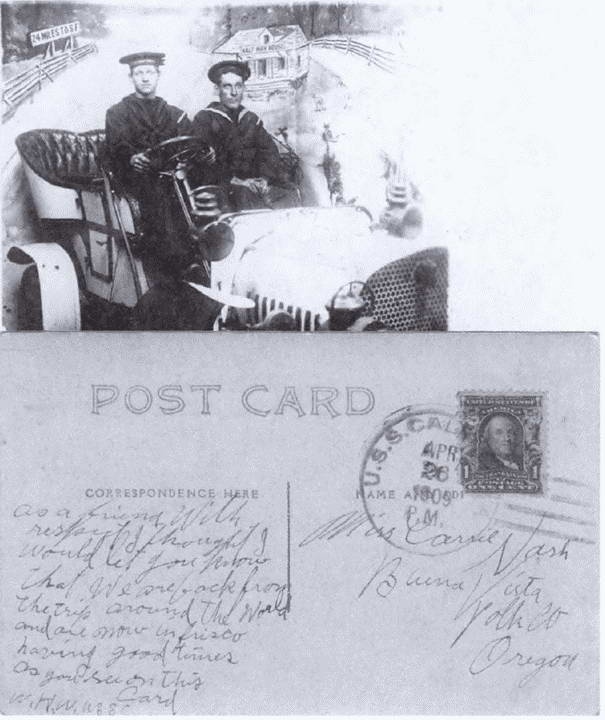 24 MILES TO S.F.
HALF WAY HOUSE
POST CARD
CORRESPONDENCE HERE
NAME A
U.S.S. CAL
APR
26
1909
P.M.
1
as a friend With
respect I thought I
would let you know
that We are back from
the trip around the World
and are now in frisco
having good times
as you see on this
Card
Miss Carrie Nash
Buena Vista
Polk Co
Oregon